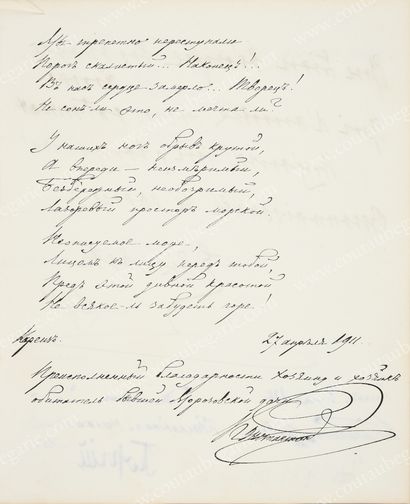 Мы трепетно переступали
Порогъ скалистый... Наконецъ!..
Въ насъ сердце замерло... Творецъ!
Не сонъ ли это, не мечта-ли?
У нашихъ ногъ обрывъ крутой,
А впереди – неизмѣримый,
Безбрежный, необозримый,
Лазоревый просторъ морской.
Неописуемое море,
Лицомъ къ лицу передъ тобой,
Предъ этой дивной красотой
Не всякое-ль забудешь горе!
Кореизъ. 27 апрѣля 1911.
Преисполненный благодарности хозяину и хозяйкѣ
обитатель бывшей Морозовской дачи